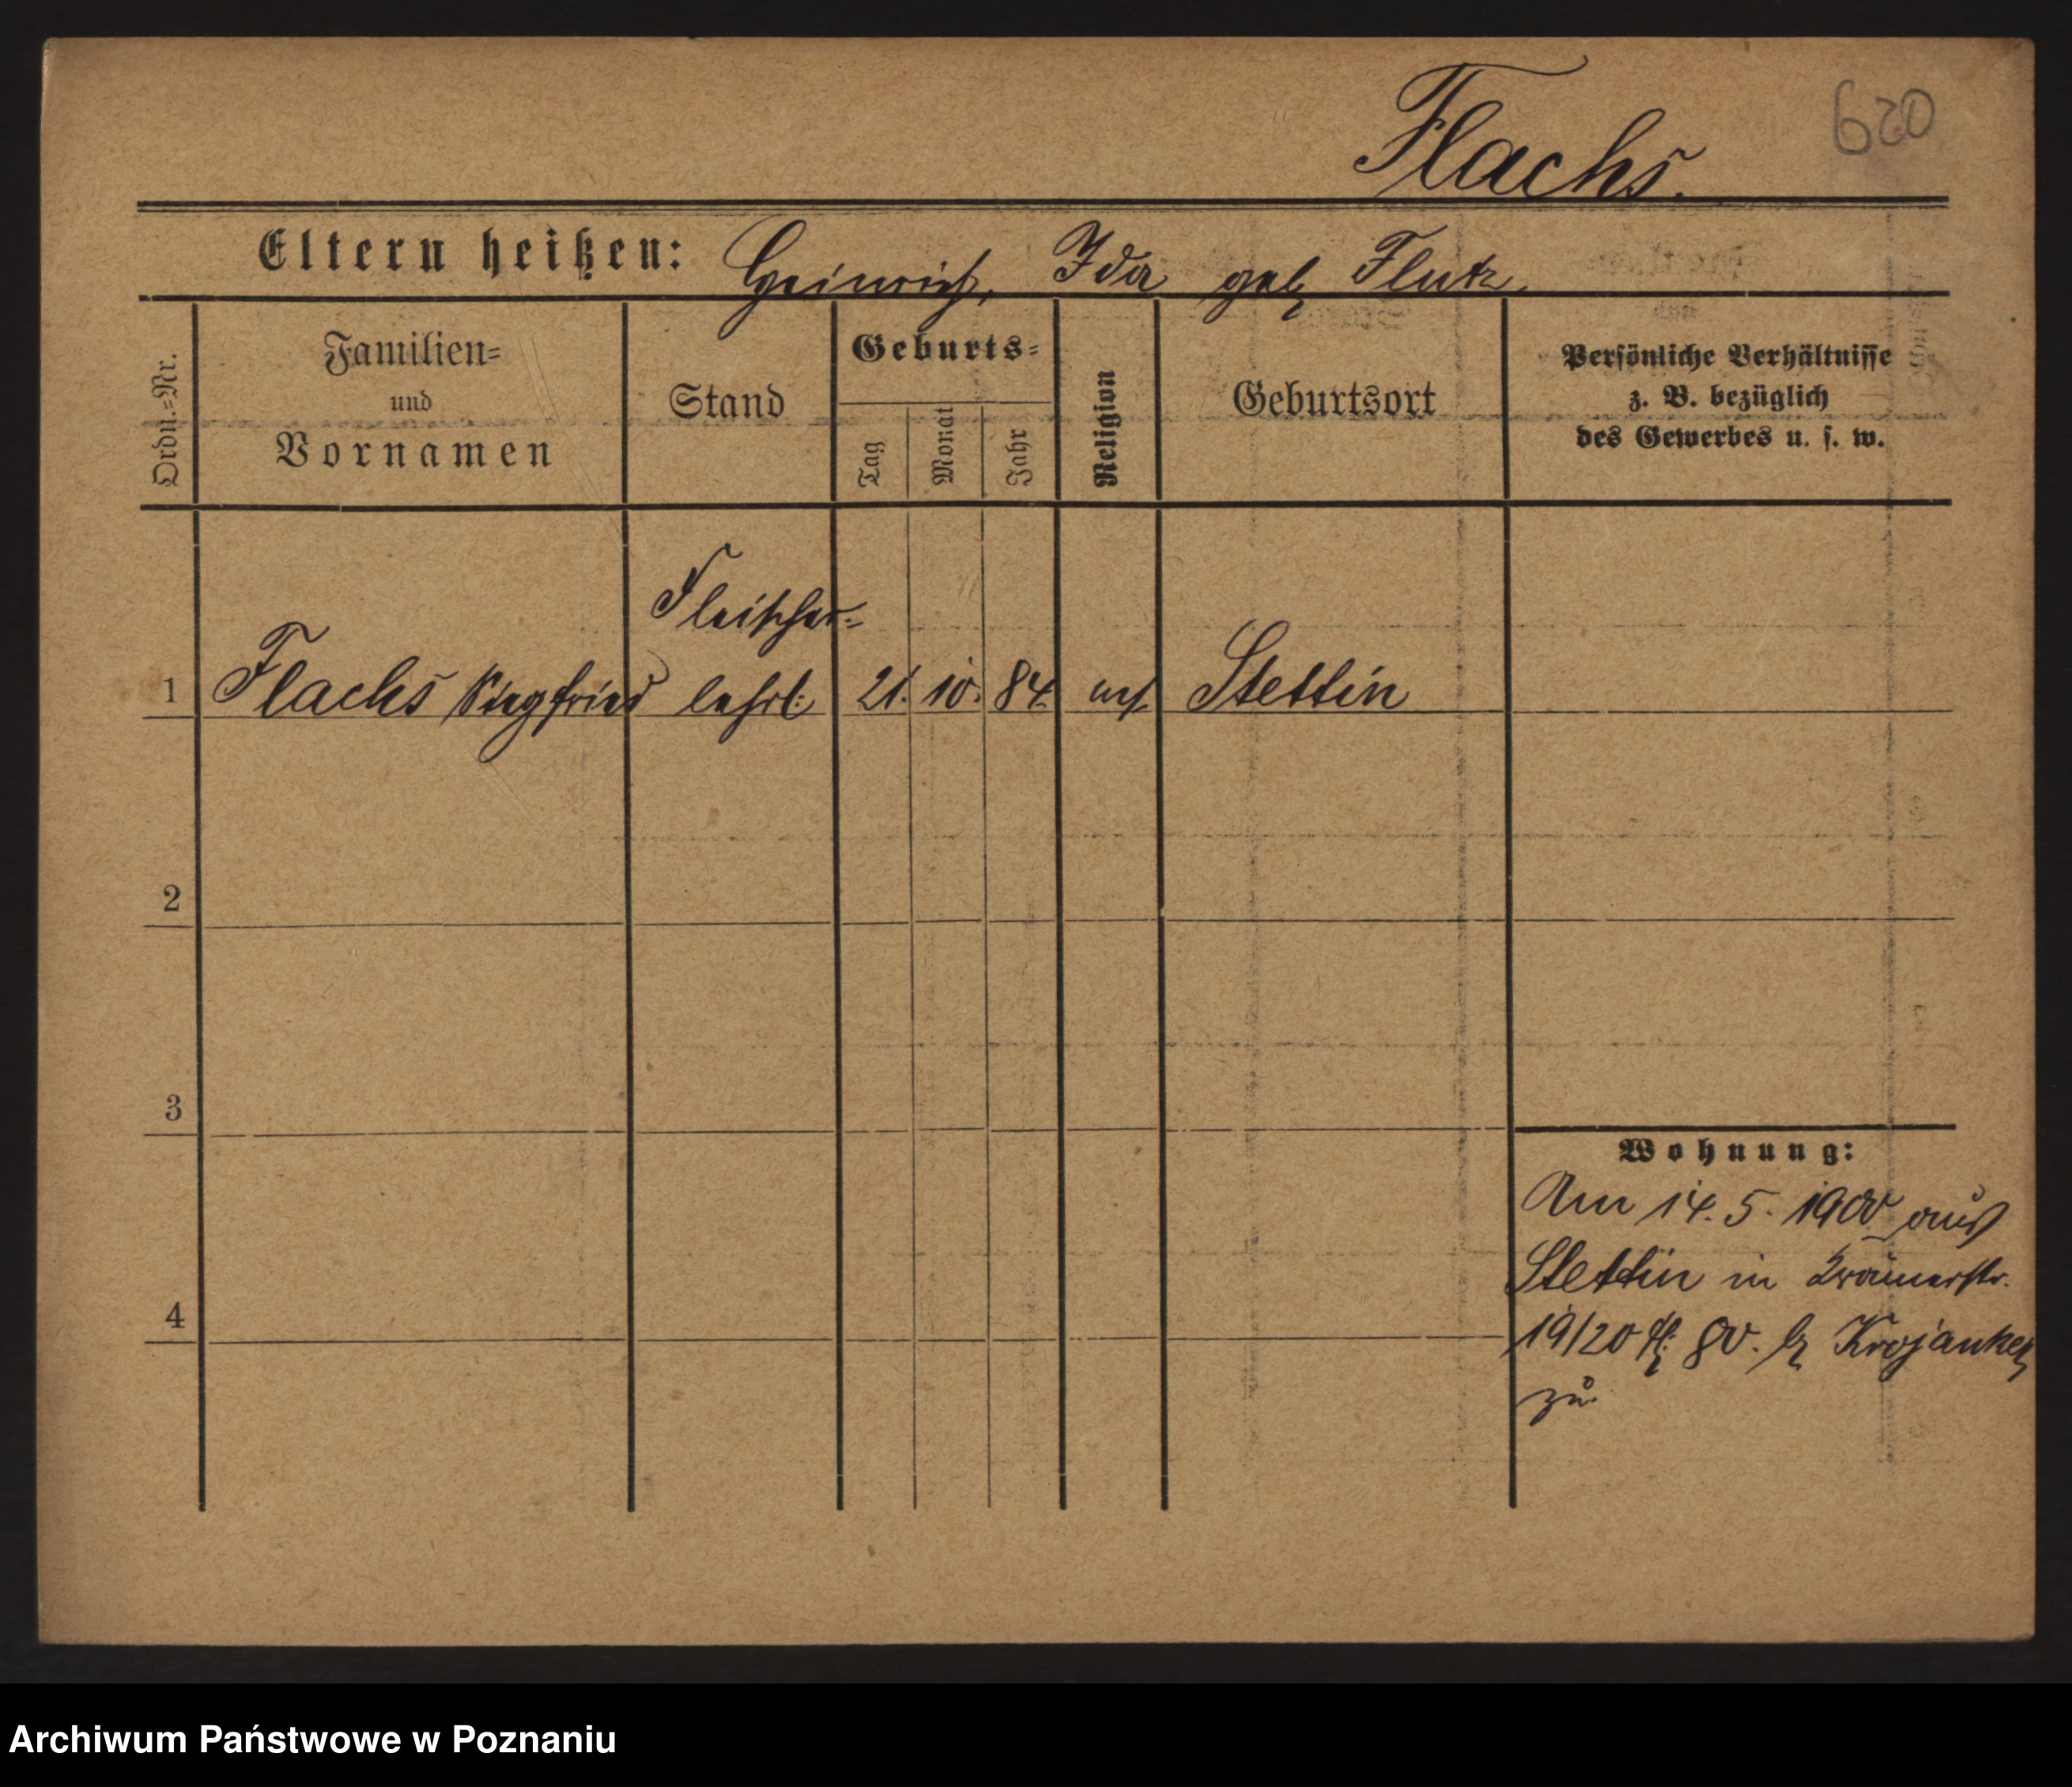 Flachs.
620
Eltern heißen: Heinrich, Ida geb. Flutz.
Ordn.=Nr.
Familien=
und
Vornamen
Stand
Geburts=
Tag
Monat
Jahr
Religion
Geburtsort
Persönliche Verhältnisse
z. B. bezüglich
des Gewerbes u. s. w.
Fleischer=
1 Flachs Siegfried lehrl: 21. 10. 84. Stettin
2
3
4
Wohnung:
Am 14. 5. 1900 aus
Stettin in Krämerstr.
19/20 b. Krojanker
zu.
Archiwum Państwowe w Poznaniu